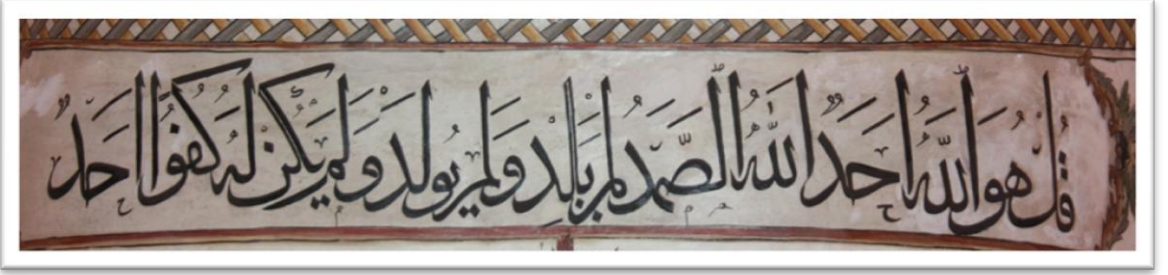 قُلْ هُوَ اللّٰهُ اَحَدٌ اَللّٰهُ الصَّمَدُ لَمْ يَلِدْ وَلَمْ يُولَدْ وَلَمْ يَكُنْ لَهُ كُفُوًا اَحَدٌ